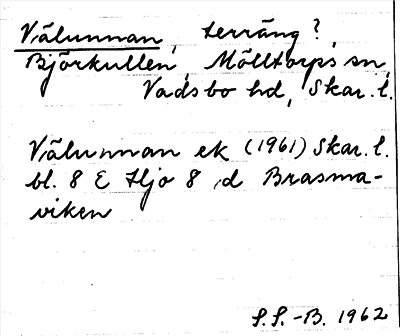 Välunnan, terräng?,
Björkullen, Mölltorps sn,
Vadsbo hd, Skar. l.
Välunnan ek (1961) Skar. l.
bl. 8 E Hjo 8 d Brasma-
viken
S.S.-B. 1962